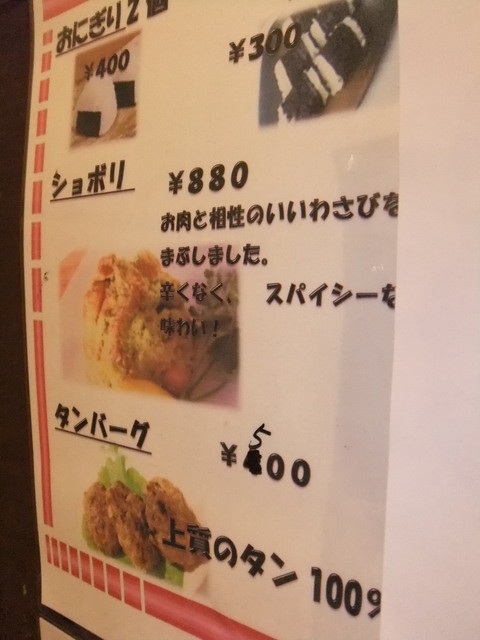 おにぎり2個
¥400
¥300
ショボリ ¥880
お肉と相性のいいわさびを
まぶしました。
辛くなく、 スパイシーな
味わい!
タンバーグ
¥500
上質のタン 100%